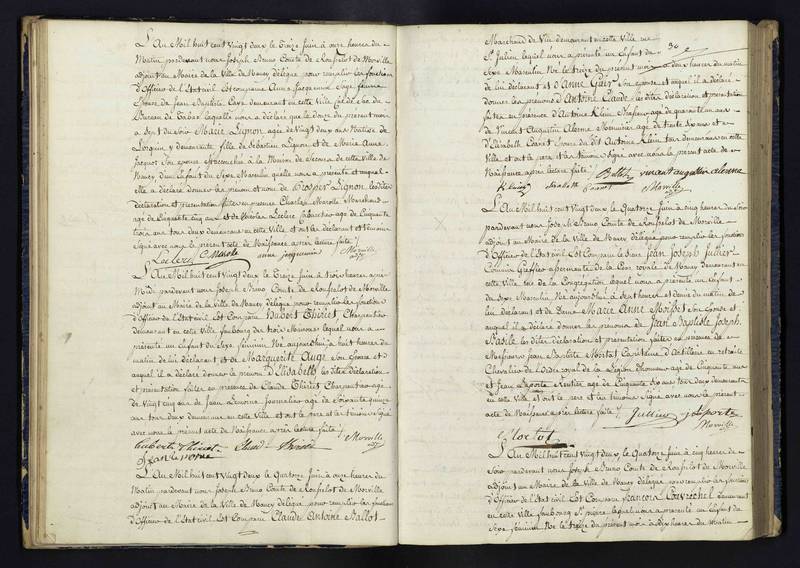 L'An Mil huit cent Vingt deux le Treize Juin à onze heures du
Matin pardevant nous Joseph Bruno Comte de Roufselot de Morville
adjoint au Maire de la Ville de Nancy délégué pour remplir les fonctions
d'Officier de l'Etat civil Est comparue Anne Jacquemin Sage femme
Epouse de Jean Baptiste demeurant en cette Ville
Bureau de Tabac laquelle nous a déclaré que le douze du présent mois
à Sept du soir Marie Lignon agée de Vingt deux ans Native de
Lorquin y demeurante fille de Sébastien Lignon et de Marie Anne
Jacquot Son épouse accouchée à la Maison de Secours de cette Ville de
Nancy d'un Enfant du Sexe Masculin quelle nous a présenté et auquel
elle a déclaré donner les prénom et nom de Prosper Lignon les dites
déclaration et présentation faites en présence Charles Marole Marchand
agé de Cinquante cinq ans et de Nicolas Leclerc Cabaretier agé de Cinquante
trois ans tous deux demeurans en cette Ville et ont les déclarant et témoins
Signé avec nous le présent acte de Naissance après lecture faite /
Leclerc C Marole anne jacquemin Morville
L'An Mil huit cent Vingt deux le Treize Juin à trois heures après
Midi pardevant nous Joseph Bruno Comte de Roufselot de Morville
adjoint au Maire de la Ville de Nancy délégué pour remplir les fonctions
d'Officier de l'Etat civil Est Comparu Hubert Thiriet, Charpentier
demeurant en cette Ville faubourg des trois Maisons lequel nous a
présenté un Enfant du Sexe féminin Né aujourd'hui à huit heures du
matin de lui déclarant et de Marguerite Auge Son épouse et
auquel il a déclaré donner le prénom d'Elisabeth les dites déclaration
et présentation faites en présence de Claude Thiriet Charpentier agé
de Vingt cinq ans de Jean Lemoine journalier agé de Soixante quinze
ans tous deux demeurans en cette Ville et ont le père et les témoins Signé
avec nous le présent acte de Naissance après lecture faite /
hubert Thiriet Claude Thiriet Morville
Jean le moine
L'An Mil huit cent Vingt deux le Quatorze Juin à onze heures du
Matin pardevant nous Joseph Bruno Comte de Roufselot de Morville
adjoint au Maire de la Ville de Nancy délégué pour remplir les fonctions
d'Officier de l'Etat civil Est Comparu Claude Antoine Ballot
Marchand de Vin demeurant en cette Ville rue
St Julien lequel nous a présenté un Enfant du
Sexe Masculin Né le treize du présent mois à deux heures du matin
de lui déclarant et d'Anne Gair Son épouse et auquel il a déclaré
donner les prénoms d'Antoine Claude les dites déclaration et présentation
faites en présence d'Antoine Klein Professeur agé de quarante un ans
de Vincent Augustin Alenne Menuisier agé de trente six ans et
d'Elisabeth Epouse du dit Antoine Klein tous demeurans en cette
Ville et ont le père et les témoins Signé avec nous le présent acte de
Naissance après lecture faite / Ballot vincent augustin alenne
Klein Elisabeth Morville
L'An Mil huit cent Vingt deux le Quatorze Juin à cinq heures du Soir
pardevant nous Joseph Bruno Comte de Roufselot de Morville
adjoint au Maire de la Ville de Nancy délégué pour remplir les fonctions
d'Officier de l'Etat civil Est Comparu le Sieur Jean Joseph Jullier
Commis Greffier assermenté de la Cour royale de Nancy demeurant en
cette Ville rue de la Congrégation lequel nous a présenté un Enfant
du Sexe Masculin Né aujourd'hui à Sept heures et demi du matin de
lui déclarant et de Dame Marie Anne Son épouse et
auquel il a déclaré donner les prénoms de Jean Baptiste Joseph
Basile les dites déclaration et présentation faites en présence de
Messieurs Jean Baptiste Capitaine d'Artillerie en retraite
Chevalier de l'ordre royal de la Légion d'honneur agé de Cinquante ans
et Jean Laporte Rentier agé de Cinquante six ans tous deux demeurans
en cette Ville et ont le père et les témoins signé avec nous le présent
acte de Naissance après lecture faite / Jullier J Laporte
Morville
L'An Mil huit cent Vingt deux, le Quatorze Juin à cinq heures du
Soir pardevant nous Joseph Bruno Comte de Roufselot de Morville
adjoint au Maire de la Ville de Nancy délégué pour remplir les fonctions
d'Officier de l'Etat civil Est Comparu François demeurant
en cette Ville faubourg St Pierre lequel nous a présenté un Enfant du
Sexe féminin Né le treize du présent mois à dix heures du Matin